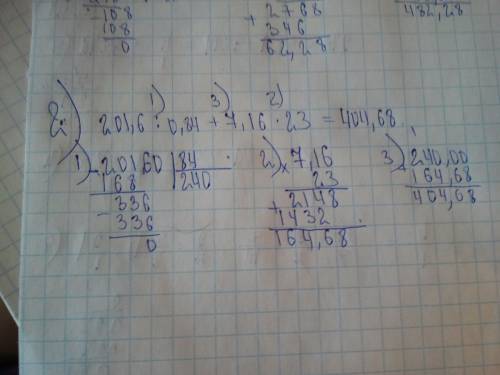 108
108
0
+ 2768
346
62,28
482,28
1) 3) 2)
2) 201,6 : 0,84 + 7,16 · 23 = 404,68
1) 20160 | 84
168 | 240
- 336
336
0
2) × 7,16
23
+ 2148
1432
164,68
3) 240,00
164,68
404,68